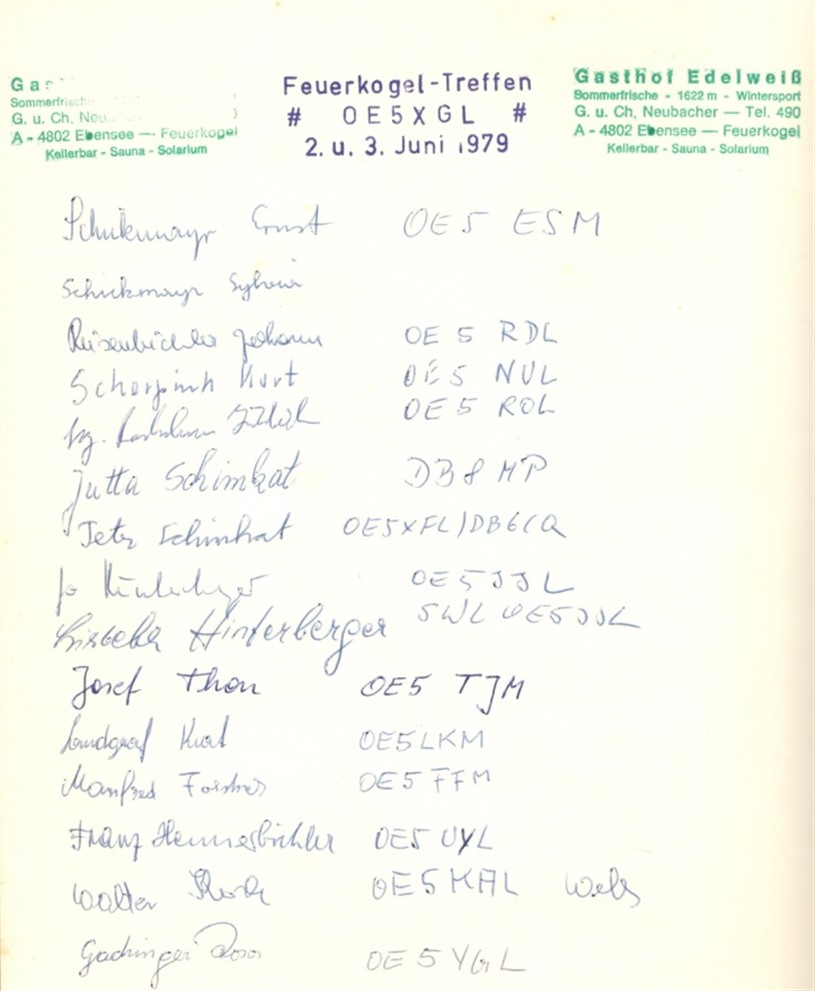 Gasthof Edelweiß
Sommerfrische - 1622 m - Wintersport
G. u. Ch. Neubacher — Tel. 490
A - 4802 Ebensee — Feuerkogel
Kellerbar - Sauna - Solarium
Feuerkogel-Treffen
# OE5XGL #
2. u. 3. Juni 1979
Ga
Sommerfrisch
G. u. Ch. Neu
A - 4802 Ebensee — Feuerkogel
Kellerbar - Sauna - Solarium
Schickmayr Ernst OE5 ESM
Schickmayr Sylvia
Johann OE 5 RDL
Kurt OE5 NUL
OE5 ROL
Jutta Schimkat DB8MP
Peter Schimkat OE5XFL/DB6CQ
OE5JJL
Hinterberger SWL OE5JJL
Josef Thon OE5 TJM
Landgraf Kurt OE5LKM
Manfred OE5 FFM
Franz Hennerbichler OE5 UYL
Walter OE5KAL Wels
Gachinger OE5YGL